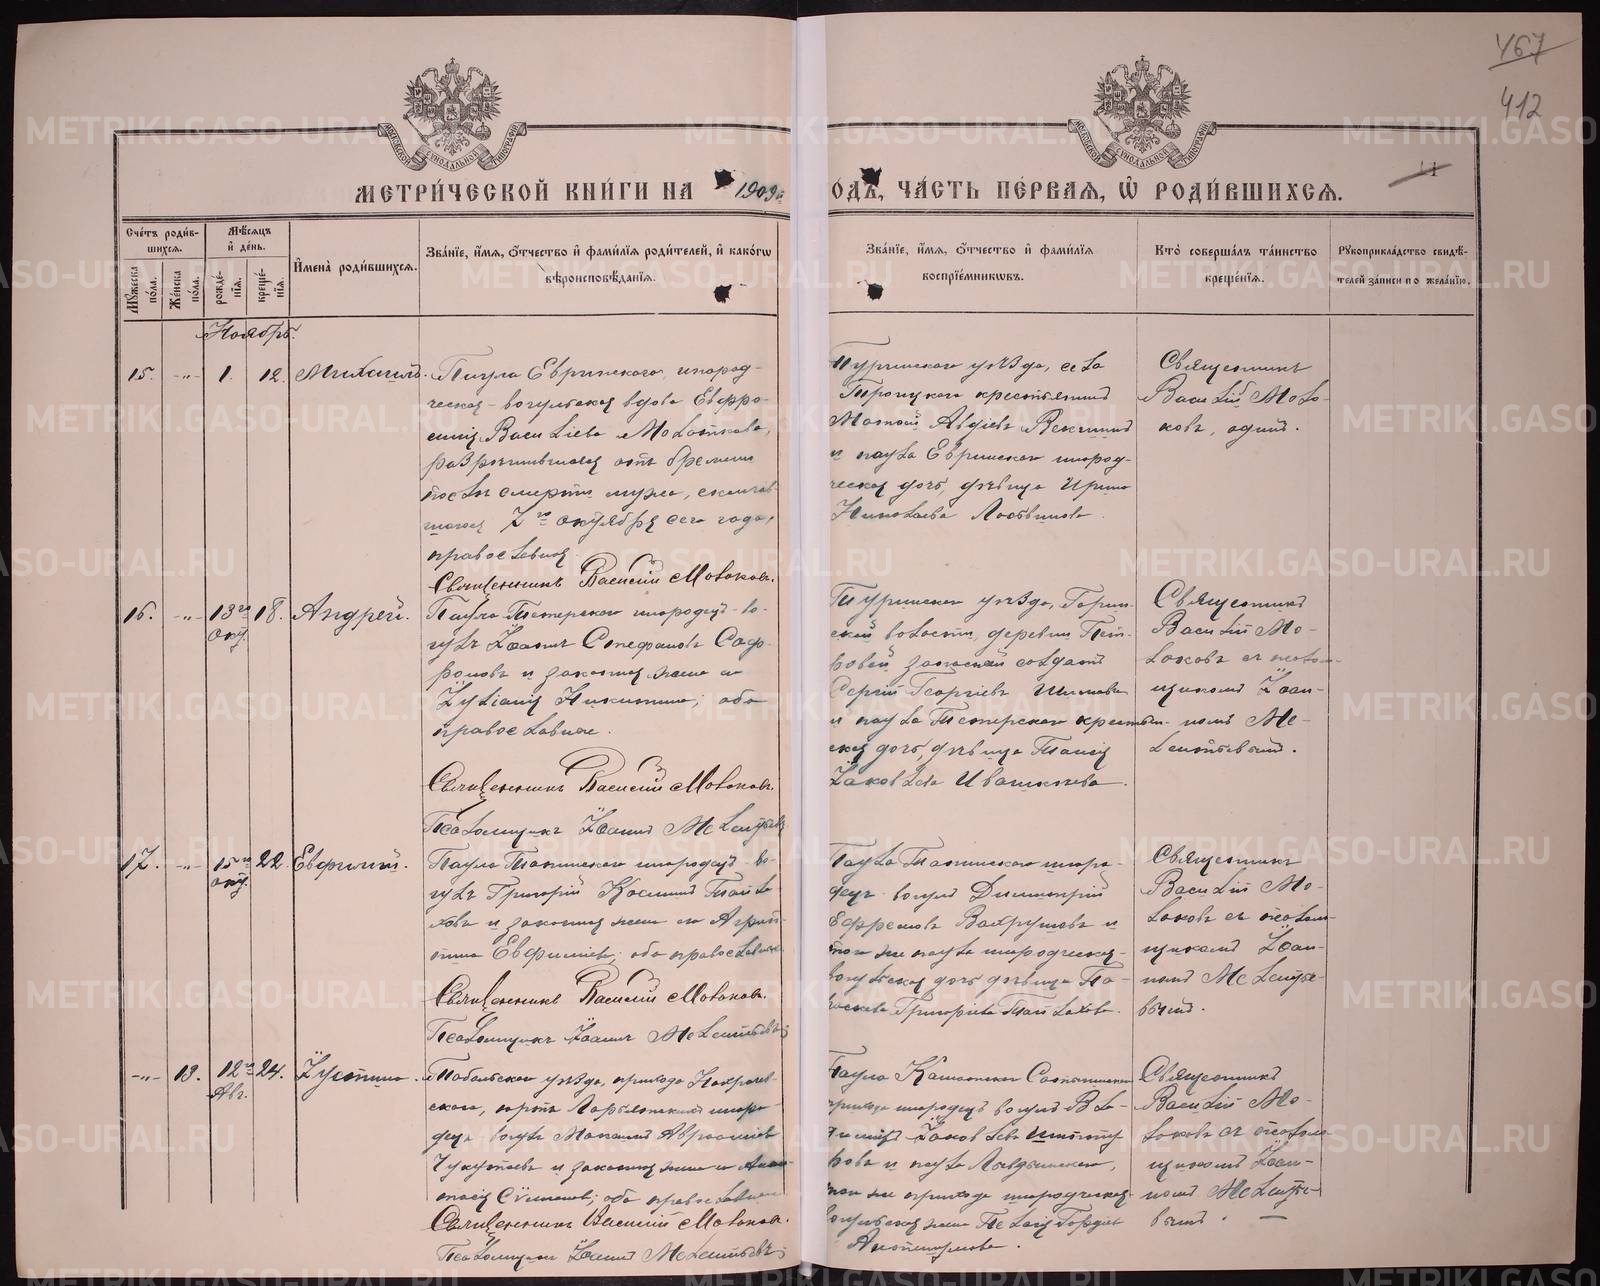 467
412
МОСКОВСКОЙ СѴНОДАЛЬНОЙ ТИПОГРАФІИ
МОСКОВСКОЙ СѴНОДАЛЬНОЙ ТИПОГРАФІИ
МЕТРИ́ЧЕСКОЙ КНИ́ГИ НА 1909й
ОДЪ, ЧА́СТЬ ПЕ́РВАѦ, Ѡ РОДИ́ВШИХСѦ.
Сче́тъ роди́в-
шихсѧ.
Мꙋ́жеска по́ла.
Же́нска по́ла.
Мѣ́сѧцъ
и҆ де́нь.
рожде́-
нїѧ.
креще́-
нїѧ.
И҆мена̀ роди́вшихсѧ.
Зва́нїе, и҆́мѧ, ѻ҆́тчество и҆ фами́лїѧ роди́телей, и҆ како́гѡ
вѣроисповѣ́данїѧ.
Зва́нїе, и҆́мѧ, ѻ҆́тчество и҆ фами́лїѧ
воспрїе́мникѡвъ.
Кто̀ соверша́лъ та́инство
креще́нїѧ.
Рꙋкоприкла́дство свидѣ́-
телей за́писи по жела́нїю.
Ноябрь.
15.
-"-
1.
12.
Михаилъ.
Паула Евринского, инород-
ческая-вогульская вдова Евфро-
синія Василіева Молоткова,
разрѣшившаяся отъ бремени
послѣ смерти мужа, скончав-
шагося 7го октября сего года,
православная.
Священникъ Василій Молоковъ.
Туринскаго уѣзда, села
Троицкаго крестьянинъ
Матѳій Авдіевъ Векшинъ
и паула Евринскаго инород-
ческая дочь, дѣвица Ирина
Николаева Лозвинова.
Священникъ
Василій Моло-
ковъ, одинъ.
16.
-"-
13го
окт.
18.
Андрей.
Паула инородецъ-во-
гулъ Іоаннъ Стефановъ Саф-
роновъ и законная жена его
Іуліанія Никитина; оба
православные.
Священникъ Василій Молоковъ.
Псаломщикъ Іоаннъ Мелентьевъ
Туринскаго уѣзда, Гарин-
ской волости, деревни Пет-
ровой запасный солдатъ
Сергій Георгіевъ
и паула крестьян-
ская дочь, дѣвица Таисія
Іаковлева Ивашкева.
Священникъ
Василій Мо-
локовъ съ псалом-
щикомъ Іоан-
номъ Ме-
лентьевымъ.
17.
-"-
15го
окт.
22.
Евфимій.
Паула инородецъ-во-
гулъ Григорій Косминъ Тайла-
ховъ и законная жена его Агрип-
пина Евфиміева; оба православные
Священникъ Василій Молоковъ.
Псаломщикъ Іоаннъ Мелентьевъ
Паула иноро-
децъ-вогулъ Димитрій
Ефремовъ Вахрушевъ и
того же паула инородческая-
вогульская дочь дѣвица Па-
раскева Григоріева Тайлахова.
Священникъ
Василій Мо-
локовъ съ псалом-
щикомъ Іоан-
номъ Меленть-
евымъ.
-"-
13.
12го
Авг.
24.
Іустина.
Тобольскаго уѣзда, прихода Нахрачев-
скаго, юртъ иноро-
децъ-вогулъ Авраамовъ
и законная жена его
оба православные
Священникъ Василій Молоковъ.
Псаломщикъ Іоаннъ Мелентьевъ
Паула Сатыгинскаго
прихода инородецъ вогулъ Вла-
диміръ Іаковлевъ
и паула
того же прихода инородческая-
вогульская жена Пелагія
Священникъ
Василій Мо-
локовъ съ псалом-
щикомъ Іоан-
номъ Меленть-
евымъ.